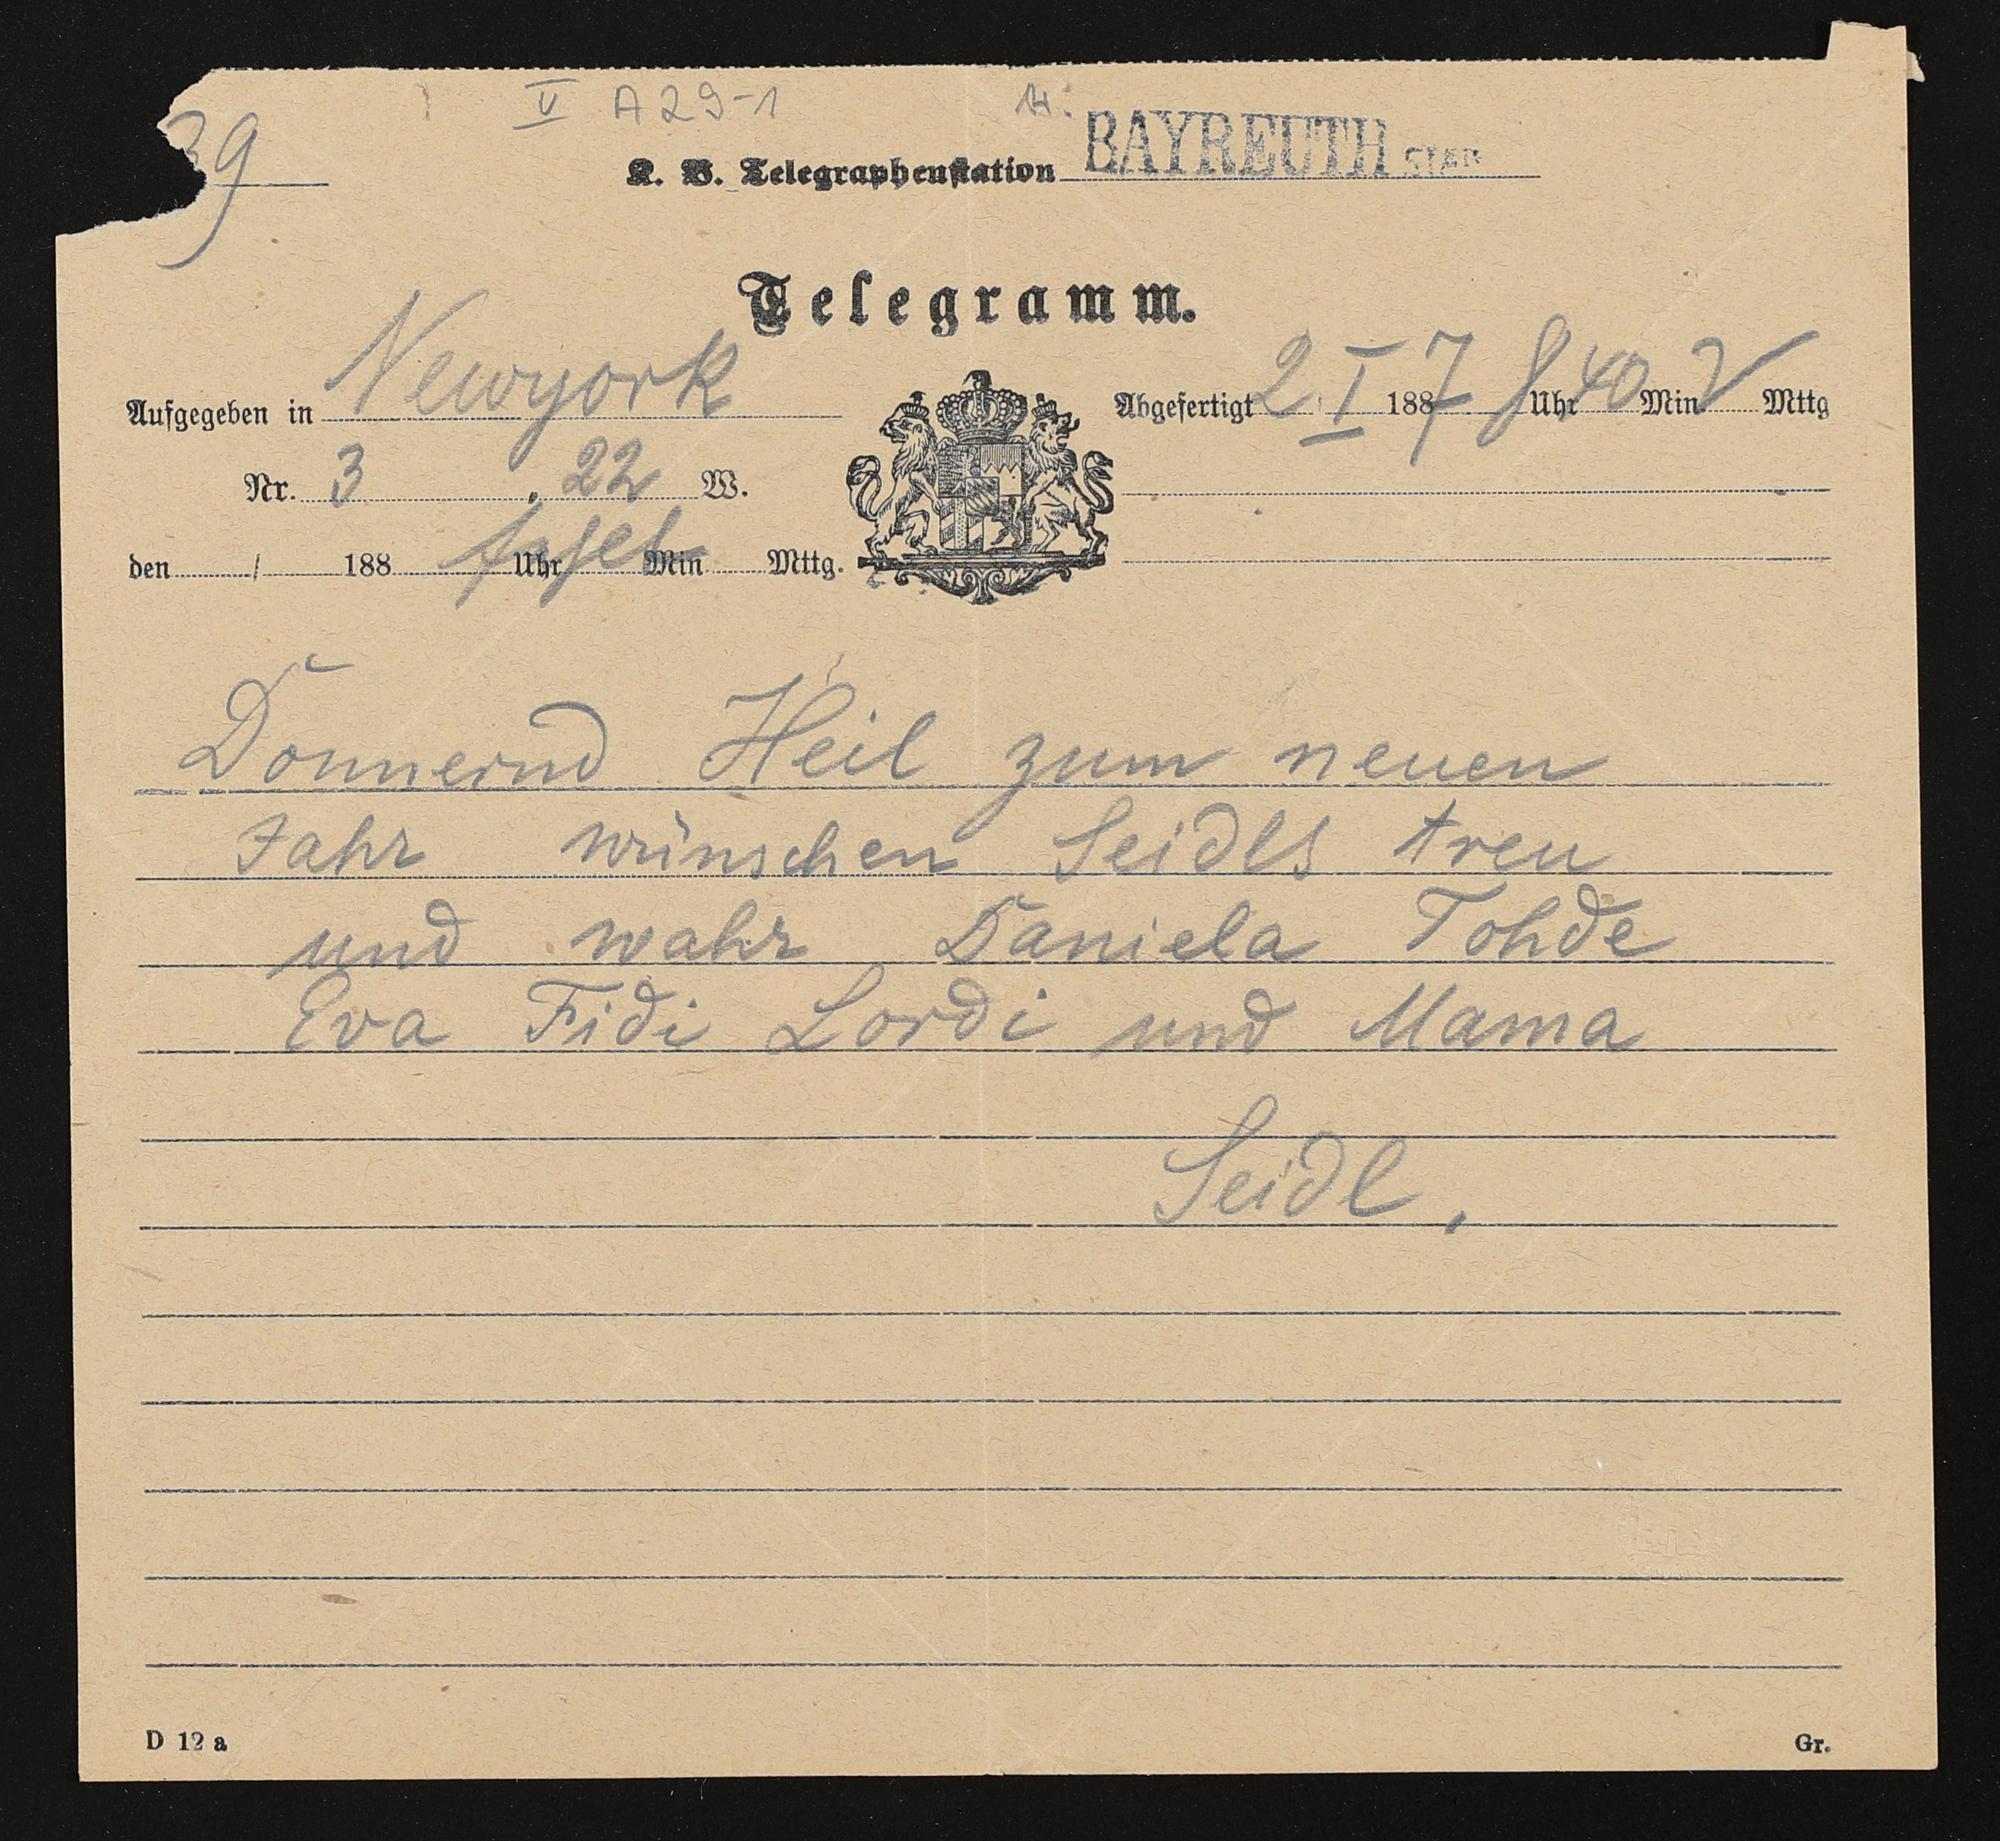 V A29-1 14.
39
K. B. Telegraphenstation BAYREUTH
Telegramm.
Aufgegeben in Newyork
Abgefertigt 2 I 1887 8 Uhr 40 Min. V Mttg
Nr. 3 , 22 W.
den / 188 Uhr Min Mttg.
Donnernd Heil zum neuen
Jahr wünschen Seidls treu
und wahr Daniela Tohde
Eva Fidi Lordi und Mama
Seidl.
D 12 a
Gr.